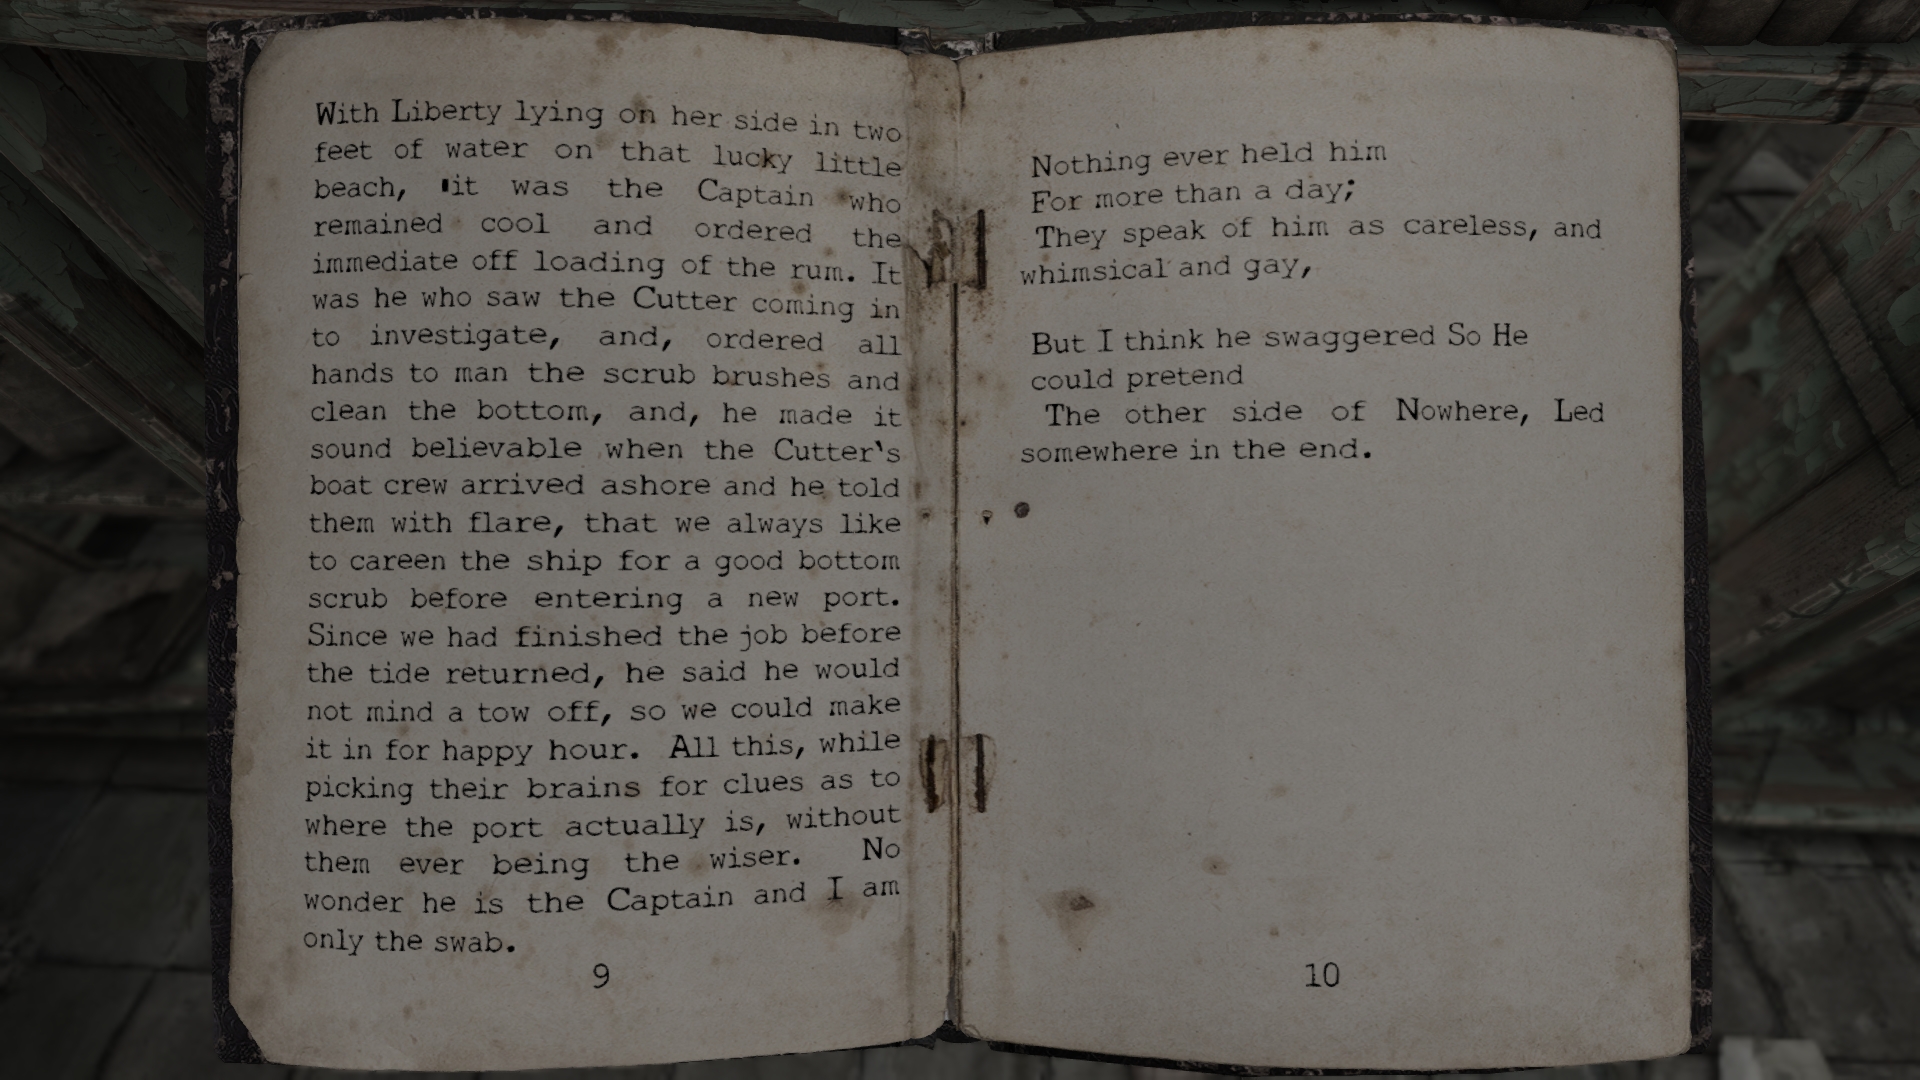 With Liberty lying on her side in two
feet of water on that lucky little
beach, it was the Captain who
remained cool and ordered the
immediate off loading of the rum. It
was he who saw the Cutter coming in
to investigate, and, ordered all
hands to man the scrub brushes and
clean the bottom, and, he made it
sound believable when the Cutter's
boat crew arrived ashore and he told
them with flare, that we always like
to careen the ship for a good bottom
scrub before entering a new port.
Since we had finished the job before
the tide returned, he said he would
not mind a tow off, so we could make
it in for happy hour. All this, while
picking their brains for clues as to
where the port actually is, without
them ever being the wiser. No
wonder he is the Captain and I am
only the swab.
9
Nothing ever held him
For more than a day;
They speak of him as careless, and
whimsical and gay,
But I think he swaggered So He
could pretend
The other side of Nowhere, Led
somewhere in the end.
10